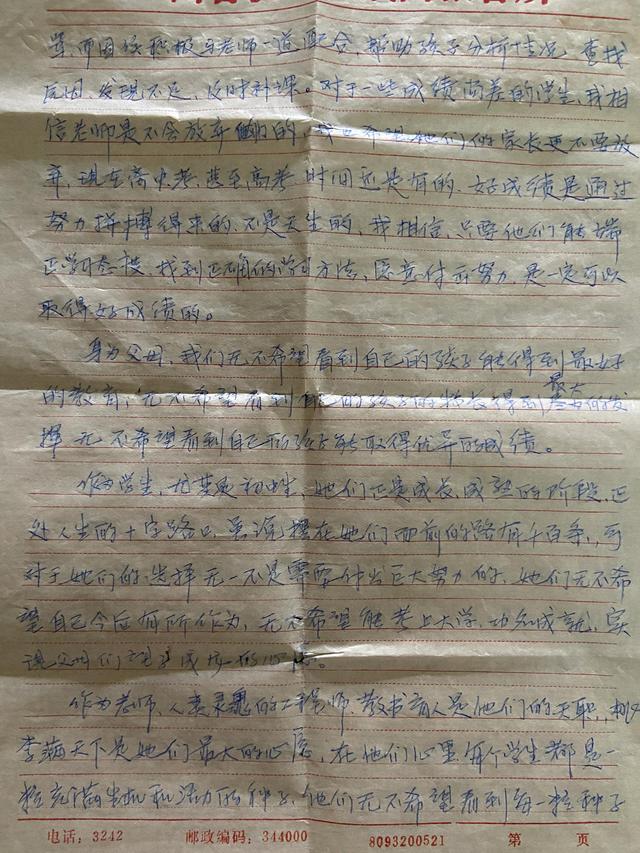 而因该积极与老师一道配合，帮助孩子分析情况，查找
原因，发现不足，及时补课。对于一些成绩尚差的学生，我相
信老师是不会放弃她们的，我也希望她们的家长更不要放
弃，现在离中考，甚至高考时间还是有的，好成绩是通过
努力拼搏得来的，不是天生的，我相信，只要他们能端
正学习态度，找到正确的学习方法，愿意付出努力，是一定可以
取得好成绩的。
身为父母，我们无不希望看到自己的孩子能得到最好
的教育，无不希望看到自己的孩子的特长得到最大的发
挥，无不希望看到自己的孩子能取得优异的成绩。
作为学生，尤其是初中生，她们正是成长，成熟的阶段，正
处人生的十字路口，虽说摆在她们面前的路有千百条，可
对于她们的选择无一不是需要付出巨大努力的，她们无不希
望自己今后有所作为，无不希望能考上大学，功名成就，实
现父母们望子成龙的心愿。
作为老师，人类灵魂的工程师，教书育人是他们的天职，桃
李满天下是她们最大的心愿，在他们心里每个学生都是一
粒充满生机和活力的种子，他们无不希望看到每一粒种子
电话：3242 邮政编码：344000 8093200521 第 页